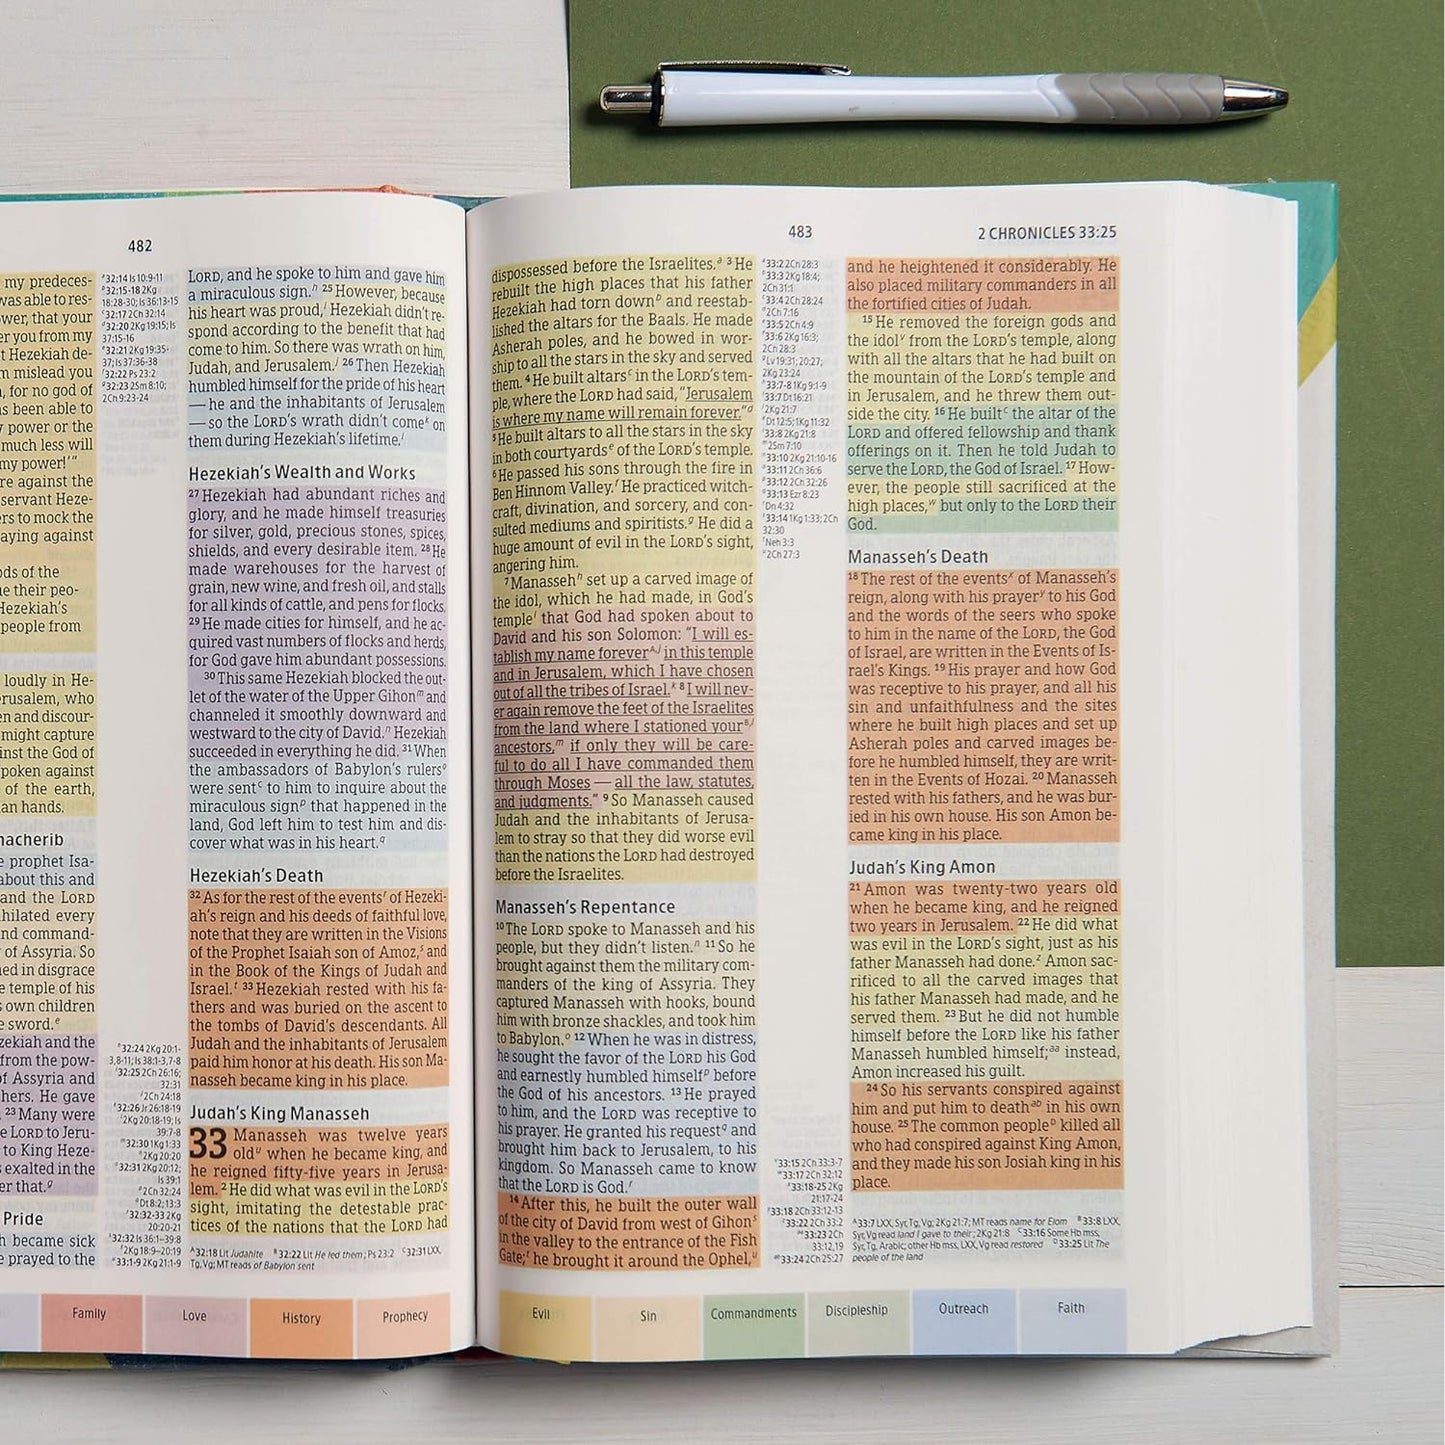 482
my predeces-
was able to res-
ower, that your
er you from my
t Hezekiah de-
n mislead you
, for no god of
s been able to
y power or the
much less will
my power!’”
re against the
servant Heze-
ers to mock the
aying against
ods of the
e their peo-
Hezekiah’s
people from
loudly in He-
erusalem, who
en and discour-
might capture
inst the God of
poken against
of the earth,
an hands.
nacherib
e prophet Isa-
about this and
and the LORD
ihilated every
nd command-
of Assyria. So
ned in disgrace
e temple of his
s own children
e sword.e
zekiah and the
from the pow-
of Assyria and
hers. He gave
23 Many were
e LORD to Jeru-
to King Heze-
s exalted in the
er that.g
Pride
h became sick
e prayed to the
32:14 Is 10:9-11
32:15-18 2Kg
18:28-30; Is 36:13-15
32:17 2Ch 32:14
32:20 2Kg 19:15; Is
37:15-16
32:21 2Kg 19:35-
37; Is 37:36-38
32:22 Ps 23:2
32:23 2Sm 8:10;
2Ch 9:23-24
32:24 2Kg 20:1-
3,8-11; Is 38:1-3,7-8
32:25 2Ch 26:16;
32:31
2Ch 24:18
32:26 Jr 26:18-19
2Kg 20:18-19; Is
39:7-8
32:30 1Kg 1:33
2Kg 20:20
32:31 2Kg 20:12;
Is 39:1
2Ch 32:24
Dt 8:2; 13:3
32:32-33 2Kg
20:20-21
32:32 Is 36:1–39:8
2Kg 18:9–20:19
33:1-9 2Kg 21:1-9
LORD, and he spoke to him and gave him
a miraculous sign.h 25 However, because
his heart was proud,i Hezekiah didn’t re-
spond according to the benefit that had
come to him. So there was wrath on him,
Judah, and Jerusalem.j 26 Then Hezekiah
humbled himself for the pride of his heart
— he and the inhabitants of Jerusalem
— so the LORD’s wrath didn’t comek on
them during Hezekiah’s lifetime.l
Hezekiah’s Wealth and Works
27 Hezekiah had abundant riches and
glory, and he made himself treasuries
for silver, gold, precious stones, spices,
shields, and every desirable item. 28 He
made warehouses for the harvest of
grain, new wine, and fresh oil, and stalls
for all kinds of cattle, and pens for flocks.
29 He made cities for himself, and he ac-
quired vast numbers of flocks and herds,
for God gave him abundant possessions.
30 This same Hezekiah blocked the out-
let of the water of the Upper Gihonm and
channeled it smoothly downward and
westward to the city of David.n Hezekiah
succeeded in everything he did. 31 When
the ambassadors of Babylon’s rulerso
were sentc to him to inquire about the
miraculous signp that happened in the
land, God left him to test him and dis-
cover what was in his heart.q
Hezekiah’s Death
32 As for the rest of the eventsr of Hezeki-
ah’s reign and his deeds of faithful love,
note that they are written in the Visions
of the Prophet Isaiah son of Amoz,s and
in the Book of the Kings of Judah and
Israel.t 33 Hezekiah rested with his fa-
thers and was buried on the ascent to
the tombs of David’s descendants. All
Judah and the inhabitants of Jerusalem
paid him honor at his death. His son Ma-
nasseh became king in his place.
Judah’s King Manasseh
33 Manasseh was twelve years
oldu when he became king, and
he reigned fifty-five years in Jerusa-
lem. 2 He did what was evil in the LORD’s
sight, imitating the detestable prac-
tices of the nations that the LORD had
A32:18 Lit Judahite B32:22 Lit He led them; Ps 23:2 C32:31 LXX,
Tg, Vg; MT reads of Babylon sent
Family
Love
History
Prophecy
483
2 CHRONICLES 33:25
dispossessed before the Israelites.a 3 He
rebuilt the high places that his father
Hezekiah had torn downb and reestab-
lished the altars for the Baals. He made
Asherah poles, and he bowed in wor-
ship to all the stars in the sky and served
them. 4 He built altarsc in the LORD’s tem-
ple, where the LORD had said, “Jerusalem
is where my name will remain forever.”d
5 He built altars to all the stars in the sky
in both courtyardse of the LORD’s temple.
6 He passed his sons through the fire in
Ben Hinnom Valley.f He practiced witch-
craft, divination, and sorcery, and con-
sulted mediums and spiritists.g He did a
huge amount of evil in the LORD’s sight,
angering him.
7 Manassehh set up a carved image of
the idol, which he had made, in God’s
templei that God had spoken about to
David and his son Solomon: “I will es-
tablish my name foreverA,j in this temple
and in Jerusalem, which I have chosen
out of all the tribes of Israel.k 8 I will nev-
er again remove the feet of the Israelites
from the land where I stationed yourB,l
ancestors,m if only they will be care-
ful to do all I have commanded them
through Moses — all the law, statutes,
and judgments.” 9 So Manasseh caused
Judah and the inhabitants of Jerusa-
lem to stray so that they did worse evil
than the nations the LORD had destroyed
before the Israelites.
Manasseh’s Repentance
10 The LORD spoke to Manasseh and his
people, but they didn’t listen.n 11 So he
brought against them the military com-
manders of the king of Assyria. They
captured Manasseh with hooks, bound
him with bronze shackles, and took him
to Babylon.o 12 When he was in distress,
he sought the favor of the LORD his God
and earnestly humbled himselfp before
the God of his ancestors. 13 He prayed
to him, and the LORD was receptive to
his prayer. He granted his requestq and
brought him back to Jerusalem, to his
kingdom. So Manasseh came to know
that the LORD is God.r
14 After this, he built the outer wall
of the city of David from west of Gihons
in the valley to the entrance of the Fish
Gate;t he brought it around the Ophel,u
33:2 2Ch 28:3
33:3 2Kg 18:4;
2Ch 31:1
33:4 2Ch 28:24
2Ch 7:16
33:5 2Ch 4:9
33:6 2Kg 16:3;
2Ch 28:3
Lv 19:31; 20:27;
2Kg 23:24
33:7-8 1Kg 9:1-9
33:7 Dt 16:21
2Kg 21:7
Dt 12:5; 1Kg 11:32
33:8 2Kg 21:8
2Sm 7:10
33:10 2Kg 21:10-16
33:11 2Ch 36:6
33:12 2Ch 32:26
33:13 Ezr 8:23
Dn 4:32
33:14 1Kg 1:33; 2Ch
32:30
Neh 3:3
2Ch 27:3
33:15 2Ch 33:3-7
33:17 2Ch 32:12
33:18-25 2Kg
21:17-24
33:18 2Ch 33:12-13
33:22 2Ch 33:2
33:23 2Ch
33:12,19
33:24 2Ch 25:27
and he heightened it considerably. He
also placed military commanders in all
the fortified cities of Judah.
15 He removed the foreign gods and
the idolv from the LORD’s temple, along
with all the altars that he had built on
the mountain of the LORD’s temple and
in Jerusalem, and he threw them out-
side the city. 16 He builtC the altar of the
LORD and offered fellowship and thank
offerings on it. Then he told Judah to
serve the LORD, the God of Israel. 17 How-
ever, the people still sacrificed at the
high places,w but only to the LORD their
God.
Manasseh’s Death
18 The rest of the eventsx of Manasseh’s
reign, along with his prayery to his God
and the words of the seers who spoke
to him in the name of the LORD, the God
of Israel, are written in the Events of Is-
rael’s Kings. 19 His prayer and how God
was receptive to his prayer, and all his
sin and unfaithfulness and the sites
where he built high places and set up
Asherah poles and carved images be-
fore he humbled himself, they are writ-
ten in the Events of Hozai. 20 Manasseh
rested with his fathers, and he was bur-
ied in his own house. His son Amon be-
came king in his place.
Judah’s King Amon
21 Amon was twenty-two years old
when he became king, and he reigned
two years in Jerusalem. 22 He did what
was evil in the LORD’s sight, just as his
father Manasseh had done.z Amon sac-
rificed to all the carved images that
his father Manasseh had made, and he
served them. 23 But he did not humble
himself before the LORD like his father
Manasseh humbled himself;aa instead,
Amon increased his guilt.
24 So his servants conspired against
him and put him to deathab in his own
house. 25 The common peopleD killed all
who had conspired against King Amon,
and they made his son Josiah king in his
place.
A33:7 LXX, Syr, Tg, Vg; 2Kg 21:7; MT reads name for Elom B33:8 LXX,
Syr, Vg read land I gave to their; 2Kg 21:8 C33:16 Some Hb mss,
Syr, Tg, Arabic; other Hb mss, LXX, Vg read restored D33:25 Lit The
people of the land
Evil
Sin
Commandments
Discipleship
Outreach
Faith